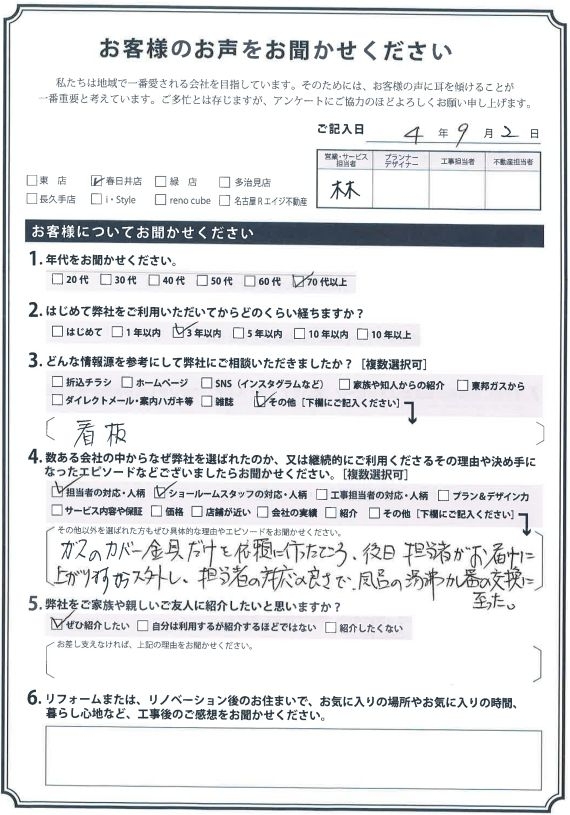 お客様のお声をお聞かせください
私たちは地域で一番愛される会社を目指しています。そのためには、お客様の声に耳を傾けることが
一番重要と考えています。ご多忙とは存じますが、アンケートにご協力のほどよろしくお願い申し上げます。
ご記入日 4 年 9 月 2 日
営業・サービス担当者 プランナーデザイナー 工事担当者 不動産担当者
林
東 店 春日井店 緑 店 多治見店
長久手店 i・Style reno cube 名古屋Rエイジ不動産
お客様についてお聞かせください
1. 年代をお聞かせください。
20代 30代 40代 50代 60代 70代以上
2. はじめて弊社をご利用いただいてからどのくらい経ちますか？
はじめて 1年以内 3年以内 5年以内 10年以内 10年以上
3. どんな情報源を参考にして弊社にご相談いただきましたか？［複数選択可］
折込チラシ ホームページ SNS（インスタグラムなど） 家族や知人からの紹介 東邦ガスから
ダイレクトメール・案内ハガキ等 雑誌 その他［下欄にご記入ください］
看板
4. 数ある会社の中からなぜ弊社を選ばれたのか、又は継続的にご利用くださるその理由や決め手に
なったエピソードなどございましたらお聞かせください。［複数選択可］
担当者の対応・人柄 ショールームスタッフの対応・人柄 工事担当者の対応・人柄 プラン＆デザイン力
サービス内容や保証 価格 店舗が近い 会社の実績 紹介 その他［下欄にご記入ください］
その他以外を選ばれた方もぜひ具体的な理由やエピソードをお聞かせください。
ガスのカバー金具だけを依頼に行ったところ、後日担当者がお届けに
上がりますからスタートし、担当者の対応の良さで、風呂の湯沸かし器の交換に
至った。
5. 弊社をご家族や親しいご友人に紹介したいと思いますか？
ぜひ紹介したい 自分は利用するが紹介するほどではない 紹介したくない
お差し支えなければ、上記の理由をお聞かせください。
6. リフォームまたは、リノベーション後のお住まいで、お気に入りの場所やお気に入りの時間、
暮らし心地など、工事後のご感想をお聞かせください。